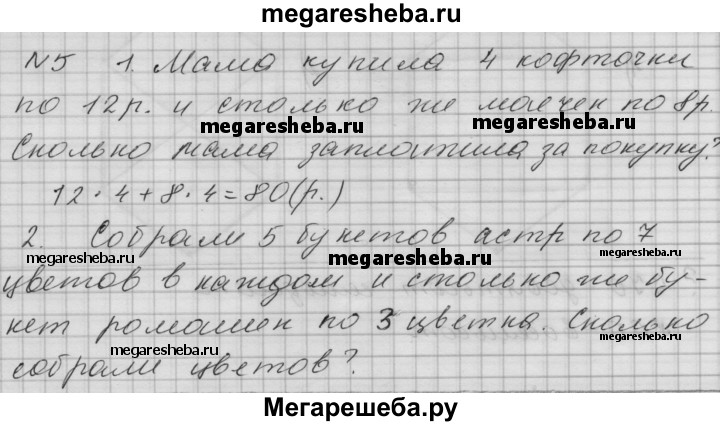 megaresheba.ru
№5 1. Мама купила 4 кофточки
по 12р. и столько же маечек по 8р.
megaresheba.ru megaresheba.ru
Сколько мама заплатила за покупку?
12 · 4 + 8 · 4 = 80 (р.)
2. Собрали 5 букетов астр по 7
megaresheba.ru megaresheba.ru
цветов в каждом и столько же бу-
кет ромашек по 3 цветка. Сколько
megaresheba.ru megaresheba.ru
собрали цветов?
Мегарешеба.ру